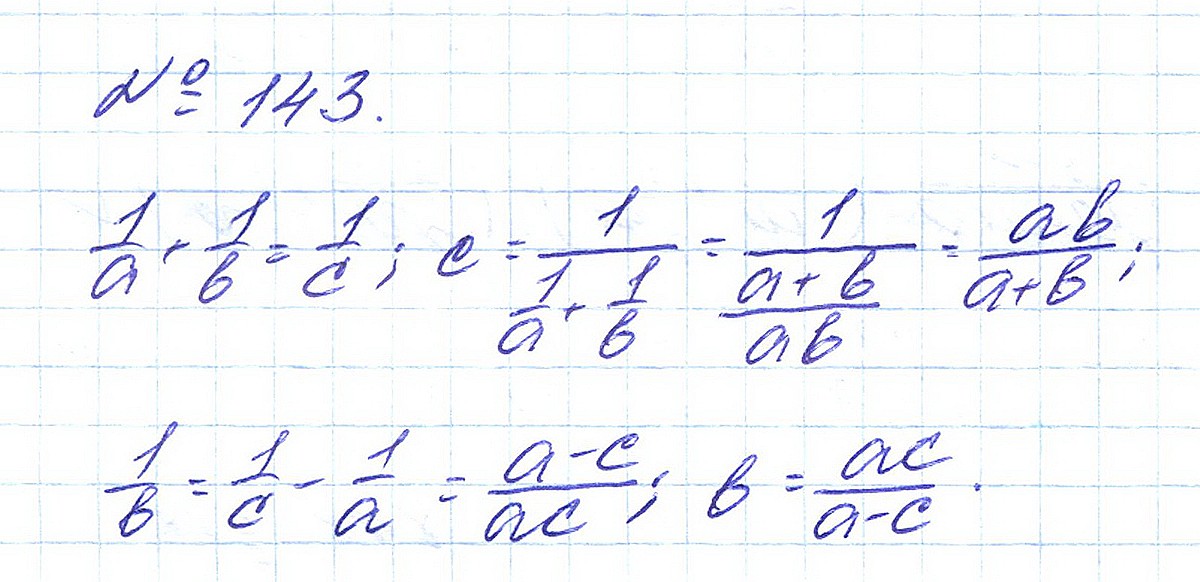 № 143.
1/a + 1/в = 1/c; c = 1/(1/a + 1/в) = 1/((a+в)/(aв)) = aв/(a+в);
1/в = 1/c - 1/a = (a-c)/(ac); в = ac/(a-c).